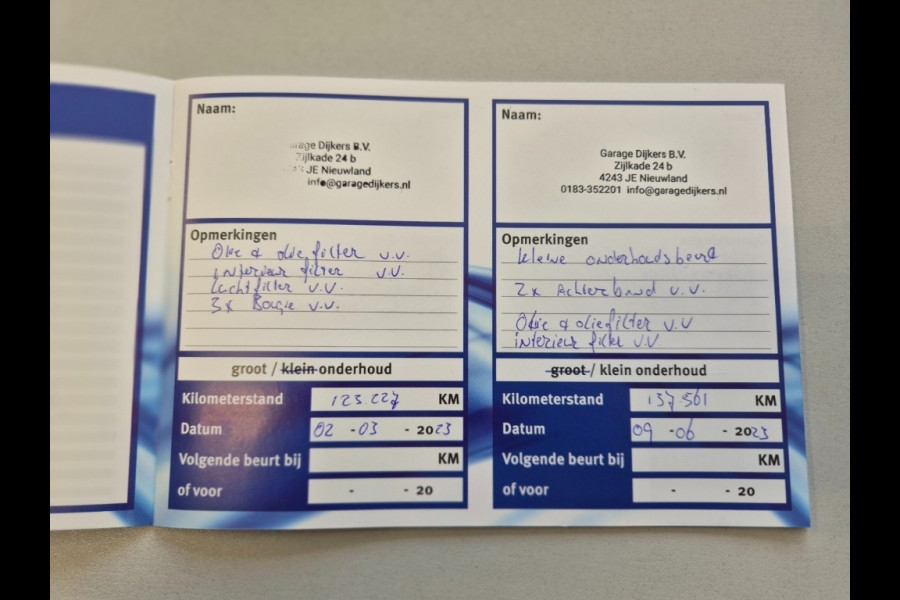 Naam:
Garage Dijkers B.V.
Zijlkade 24 b
JE Nieuwland
info@garagedijkers.nl
Opmerkingen
Olie & oliefilter v.v.
interieur filter v.v.
Luchtfilter v.v.
3x Bougie v.v.
groot / klein onderhoud
Kilometerstand 123.227 KM
Datum 02 -03 - 2023
Volgende beurt bij KM
of voor - - 20
Naam:
Garage Dijkers B.V.
Zijlkade 24 b
4243 JE Nieuwland
0183-352201 info@garagedijkers.nl
Opmerkingen
kleine onderhoudsbeurt
2x Achterband v.v.
Olie & oliefilter v.v
interieur filter v.v.
groot / klein onderhoud
Kilometerstand 137.561 KM
Datum 09 -06 - 2023
Volgende beurt bij KM
of voor - - 20